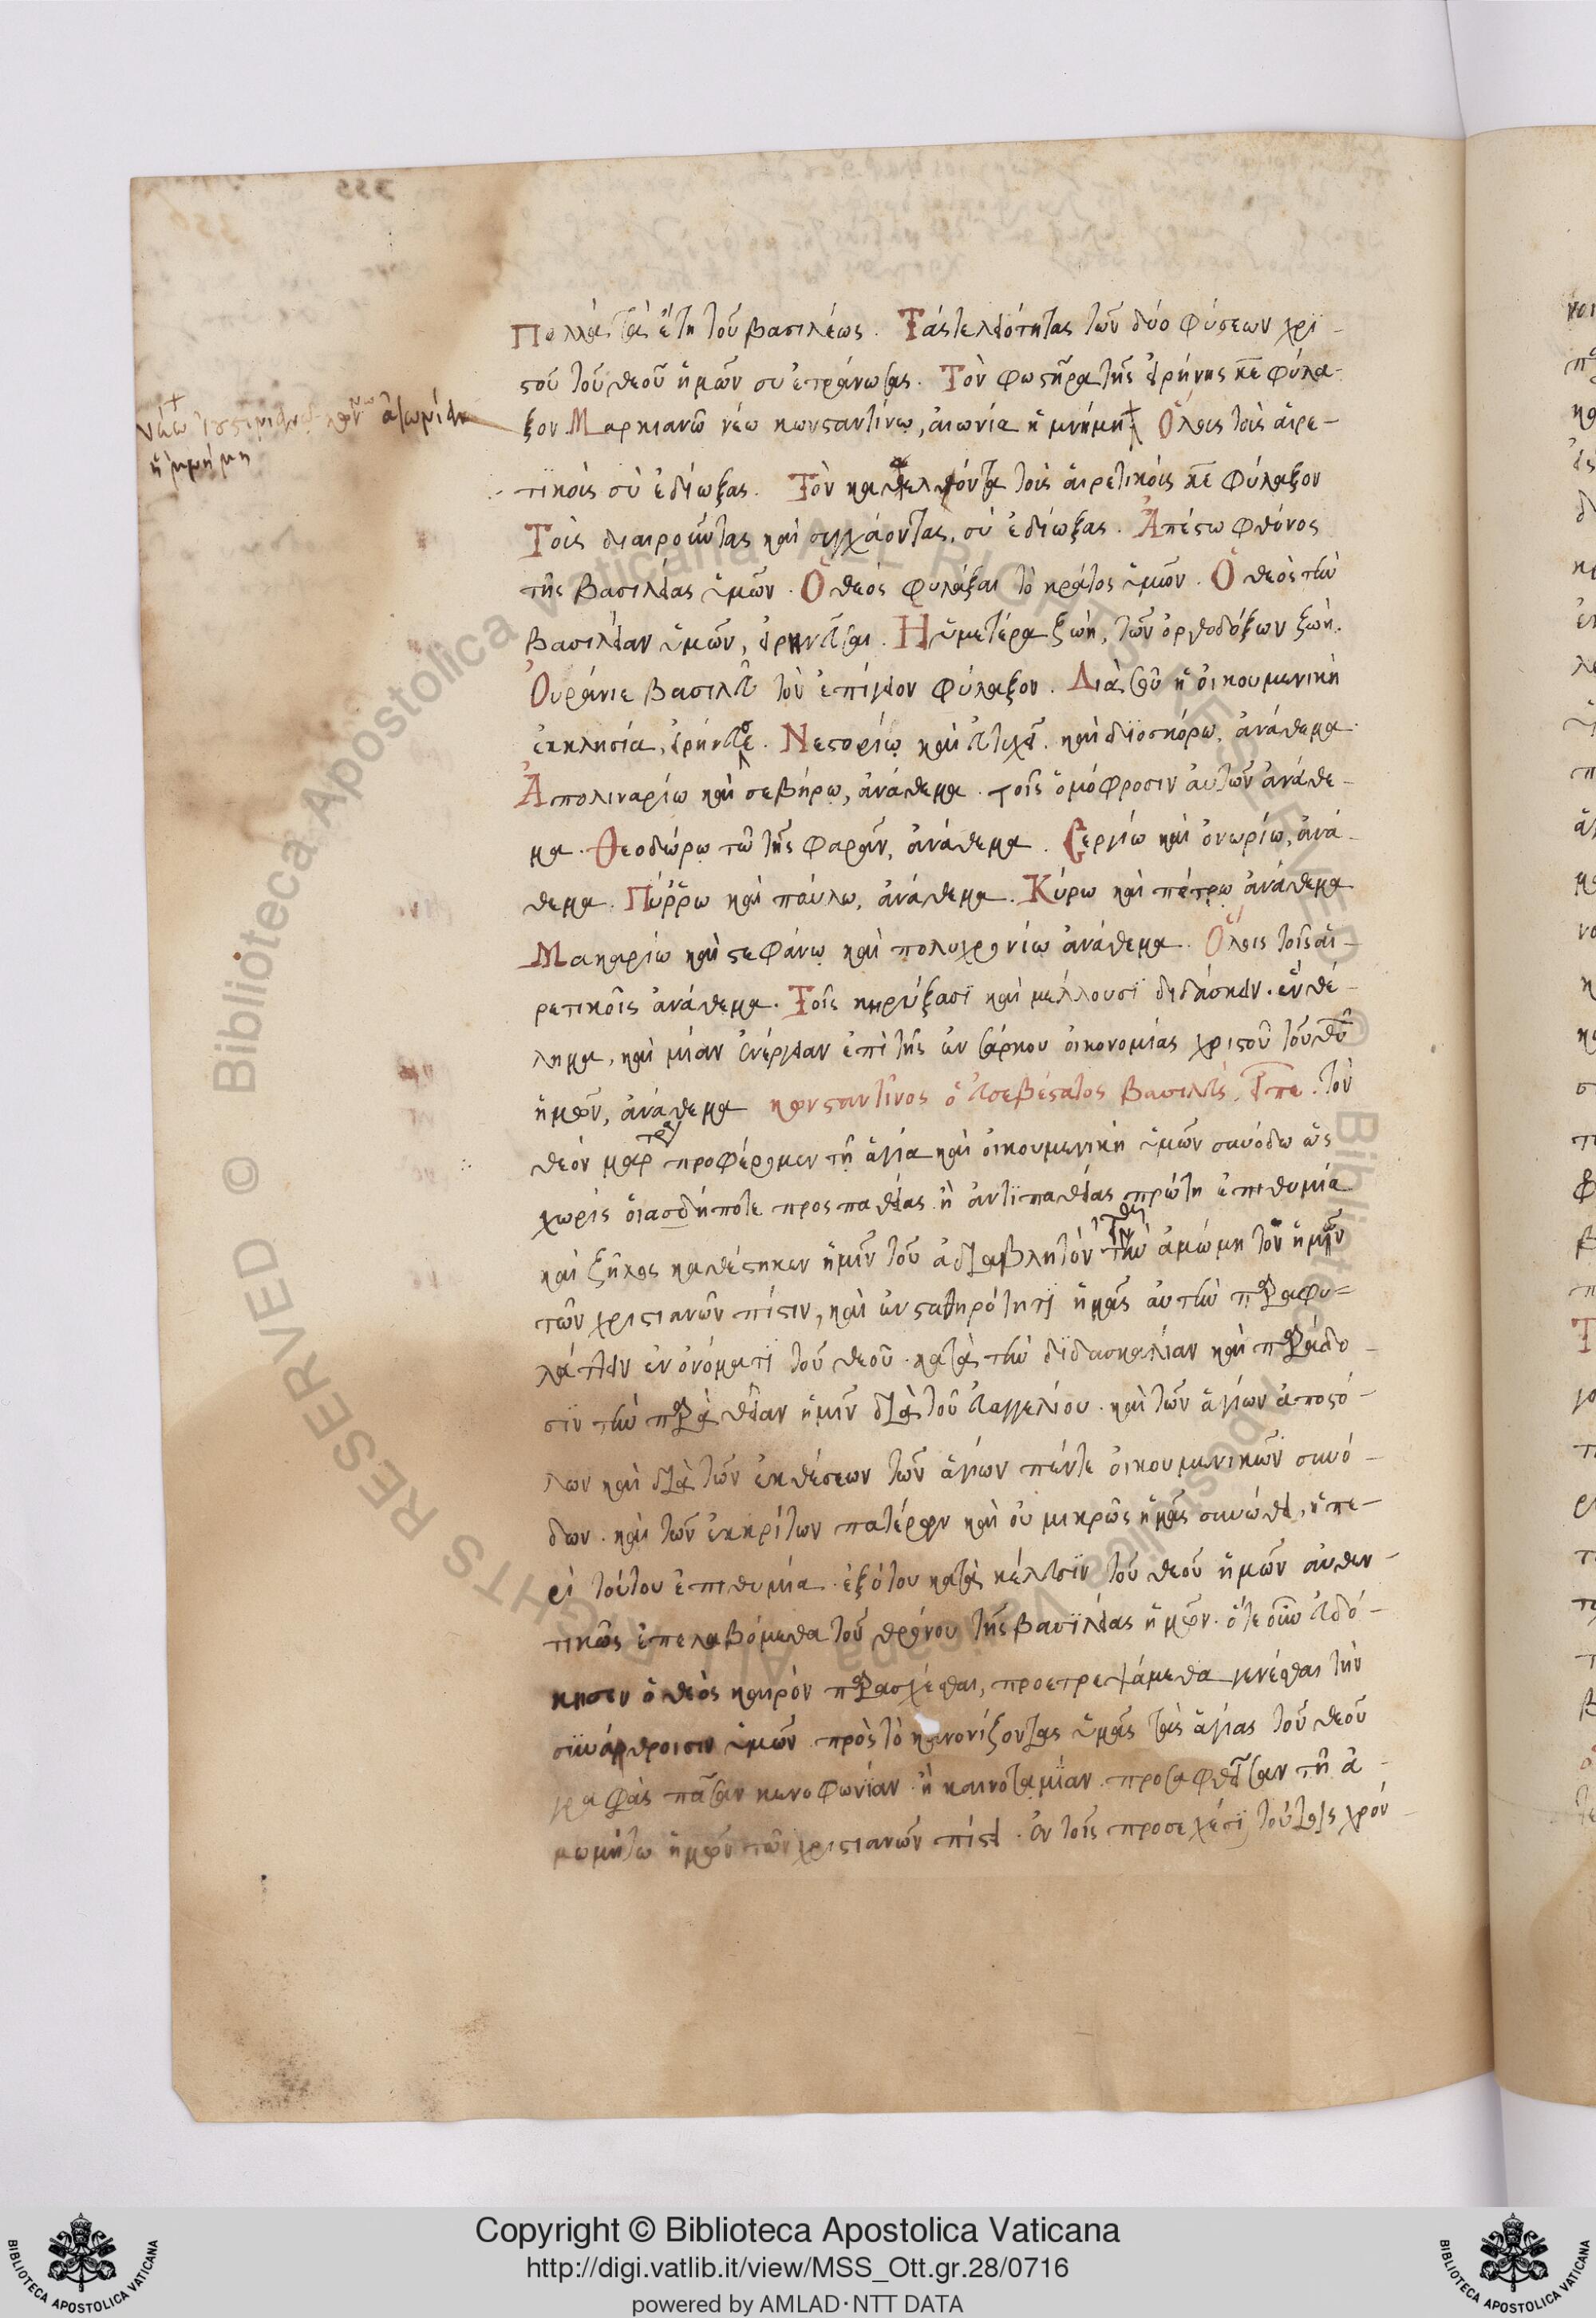 Πολλὰ τὰ ἔτη τοῦ βασιλέως. Τὰς τελειότητας τῶν δύο φύσεων χρι-
στοῦ τοῦ θεοῦ ἡμῶν συ ἐτράνωσας. Τὸν φωστῆρα τῆς εἰρήνης κε φύλα-
ξον Μαρκιανῶ νέω κωνσταντίνω, αἰωνία ἡ μνήμη Ὅλοις τοῖς αἱρε-
τικοῖς σὺ ἐδίωξας. Τὸν τοῖς αἱρετικοῖς κε φύλαξον
Τοὶς διαιροῦντας καὶ συγχέοντας, σύ ἐδίωξας. Ἀπέστω φθόνος
τῆς βασιλείας ὑμῶν. Ὁ θεός φυλάξαι τὸ κράτος ὑμῶν. Ὁ θεὸς τὴν
βασιλείαν ὑμῶν, εἰρηνεῦσαι. Ἡ ὑμετέρα ζωὴ, τῶν ὀρθοδόξων ζωὴ.
Οὐράνιε βασιλεῦ τὸν ἐπίγειον φύλαξον. Διὰ σοῦ ἡ οἰκουμενικὴ
ἐκκλησία, εἰρήνευσε. Νεστορίω καὶ εὐτυχεῖ. καὶ διοσκόρω, ἀνάθεμα.
Ἀπολιναρίω καὶ σεβήρω, ἀνάθεμα. τοῖς ὁμόφροσιν αὐτῶν ἀνάθε-
μα. Θεοδώρω τῶ τῆς φαρὰν, ἀνάθεμα. Σεργίω καὶ ὀνωρίω, ἀνά-
θεμα. Πύῤῥω καὶ παύλω, ἀνάθεμα. Κύρω καὶ πέτρω ἀνάθεμα
Μακαρίω καὶ στεφάνω καὶ πολυχρονίω ἀνάθεμα. Ὅλοις τοῖς αἱ-
ρετικοῖς ἀνάθεμα. Τοῖς κηρύξασι καὶ μέλλουσι διδάσκειν. ἓν θέ-
λημα, καὶ μίαν ἐνέργειαν ἐπὶ τῆς ἐν σάρκου οἰκονομίας χριστοῦ τοῦ θυ
ἡμῶν, ἀνάθεμα κωνσταντῖνος ὁ εὐσεβέστατος βασιλεὺς, εἶπε. τὸν
θεόν μαρ προφέρομεν τῆ ἁγία καὶ οἰκουμενικὴ ὑμῶν συνόδω ὡς
χωρὶς οἱασδήποτε προσπαθείας ἢ ἀντιπαθείας πρώτη ἐπιθυμία
καὶ ζῆλος καθέστηκεν ἡμῖν τοῦ ἀδιαβλητὸν τὴν ἀμώμητον ἡμῶν
τῶν χριστιανῶν πίστιν, καὶ ἐν σταθηρότητι ἡμᾶς αὐτὴν παραφυ-
λάττειν ἐν ὀνόματι τοῦ θεοῦ. κατὰ τὴν διδασκαλίαν καὶ παράδο-
σιν τὴν παραδοθεῖσαν ἡμῖν διὰ τοῦ εὐαγγελίου. καὶ τῶν ἁγίων ἀποστό-
λων καὶ διὰ τῶν ἐκθέσεων τῶν ἁγίων πέντε οἰκουμενικῶν συνό-
δων. καὶ τῶν ἐκκρίτων πατέρων καὶ οὐ μικρῶς ἡμᾶς συνώθει, ἡ πε-
ρὶ τούτου ἐπιθυμία. ἐξότου κατὰ κέλευσιν τοῦ θεοῦ ἡμῶν αὐθεν-
τικῶς ἐπελαβόμεθα τοῦ θρόνου τῆς βασιλείας ἡμῶν. ὅτε οὖν εὐδό-
κησεν ὁ θεὸς καιρόν παρασχέσθαι, προετρεψάμεθα γενέσθαι τὴν
συνάθροισιν ὑμῶν πρὸς τὸ κανονίζοντας ὑμᾶς τὰς ἁγίας τοῦ θεοῦ
γραφὰς πᾶσαν κενοφωνίαν ἢ καινοτομίαν προσαφθεῖσαν τῆ ἀ-
μωμήτω ἡμῶν τῶν χριστιανῶν πίστει. ἐν τοῖς προσεχέσι τούτοις χρόν
Copyright © Biblioteca Apostolica Vaticana
http://digi.vatlib.it/view/MSS_Ott.gr.28/0716
powered by AMLAD·NTT DATA